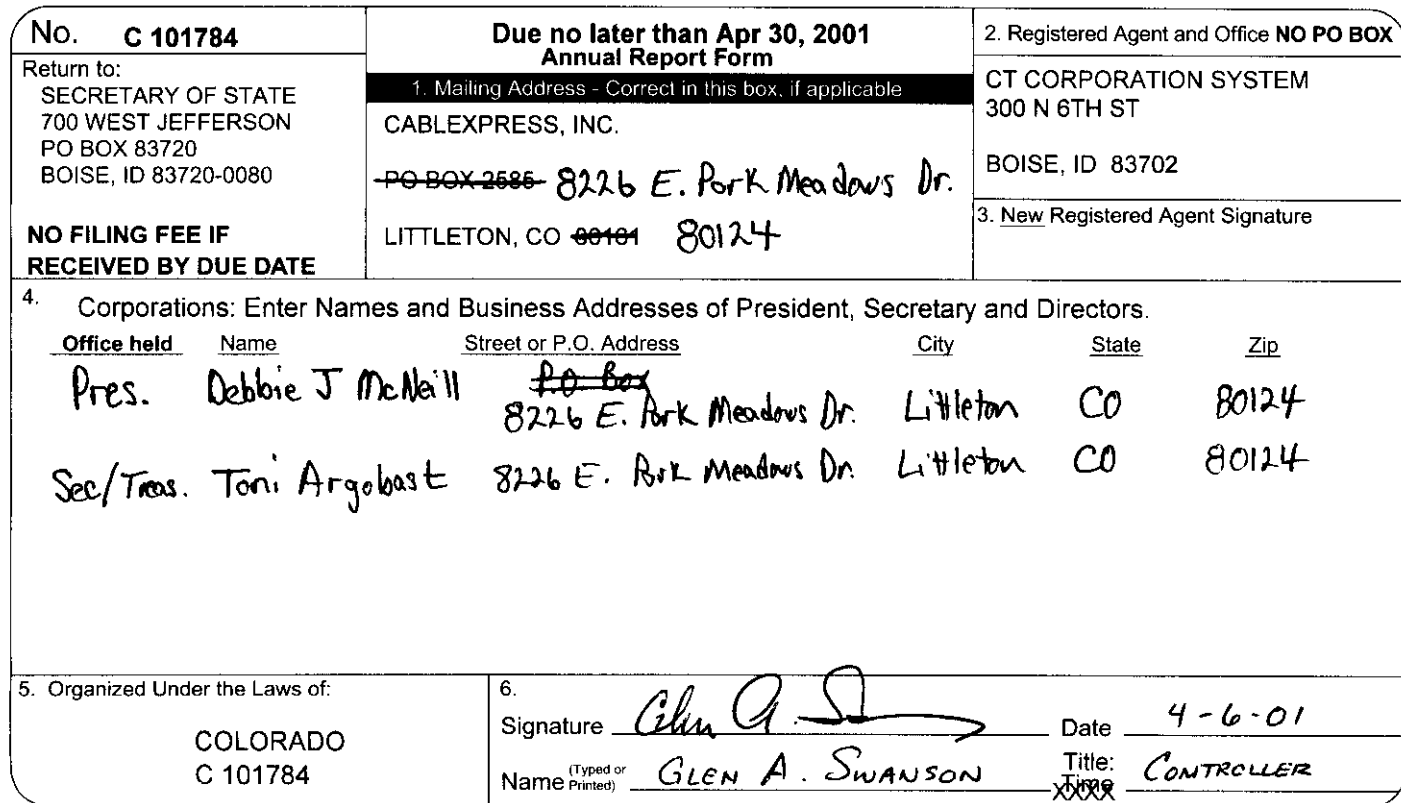 No. C 101784
Return to:
SECRETARY OF STATE
700 WEST JEFFERSON
PO BOX 83720
BOISE, ID 83720-0080
NO FILING FEE IF
RECEIVED BY DUE DATE
Due no later than Apr 30, 2001
Annual Report Form
1. Mailing Address - Correct in this box, if applicable
CABLEXPRESS, INC.
PO BOX 2585 8226 E. Park Meadows Dr.
LITTLETON, CO 80161 80124
2. Registered Agent and Office NO PO BOX
CT CORPORATION SYSTEM
300 N 6TH ST
BOISE, ID 83702
3. New Registered Agent Signature
4. Corporations: Enter Names and Business Addresses of President, Secretary and Directors.
Office held Name Street or P.O. Address City State Zip
P.O Box
Pres. Debbie J McNeill 8226 E. Park Meadows Dr. Littleton CO 80124
Sec/Treas. Toni Argobast 8226 E. Park Meadows Dr. Littleton CO 80124
5. Organized Under the Laws of:
COLORADO
C 101784
6.
Signature Glen A. S Date 4-6-01
Name (Typed or Printed) GLEN A. SWANSON Title: CONTROLLER
Time
XXXX